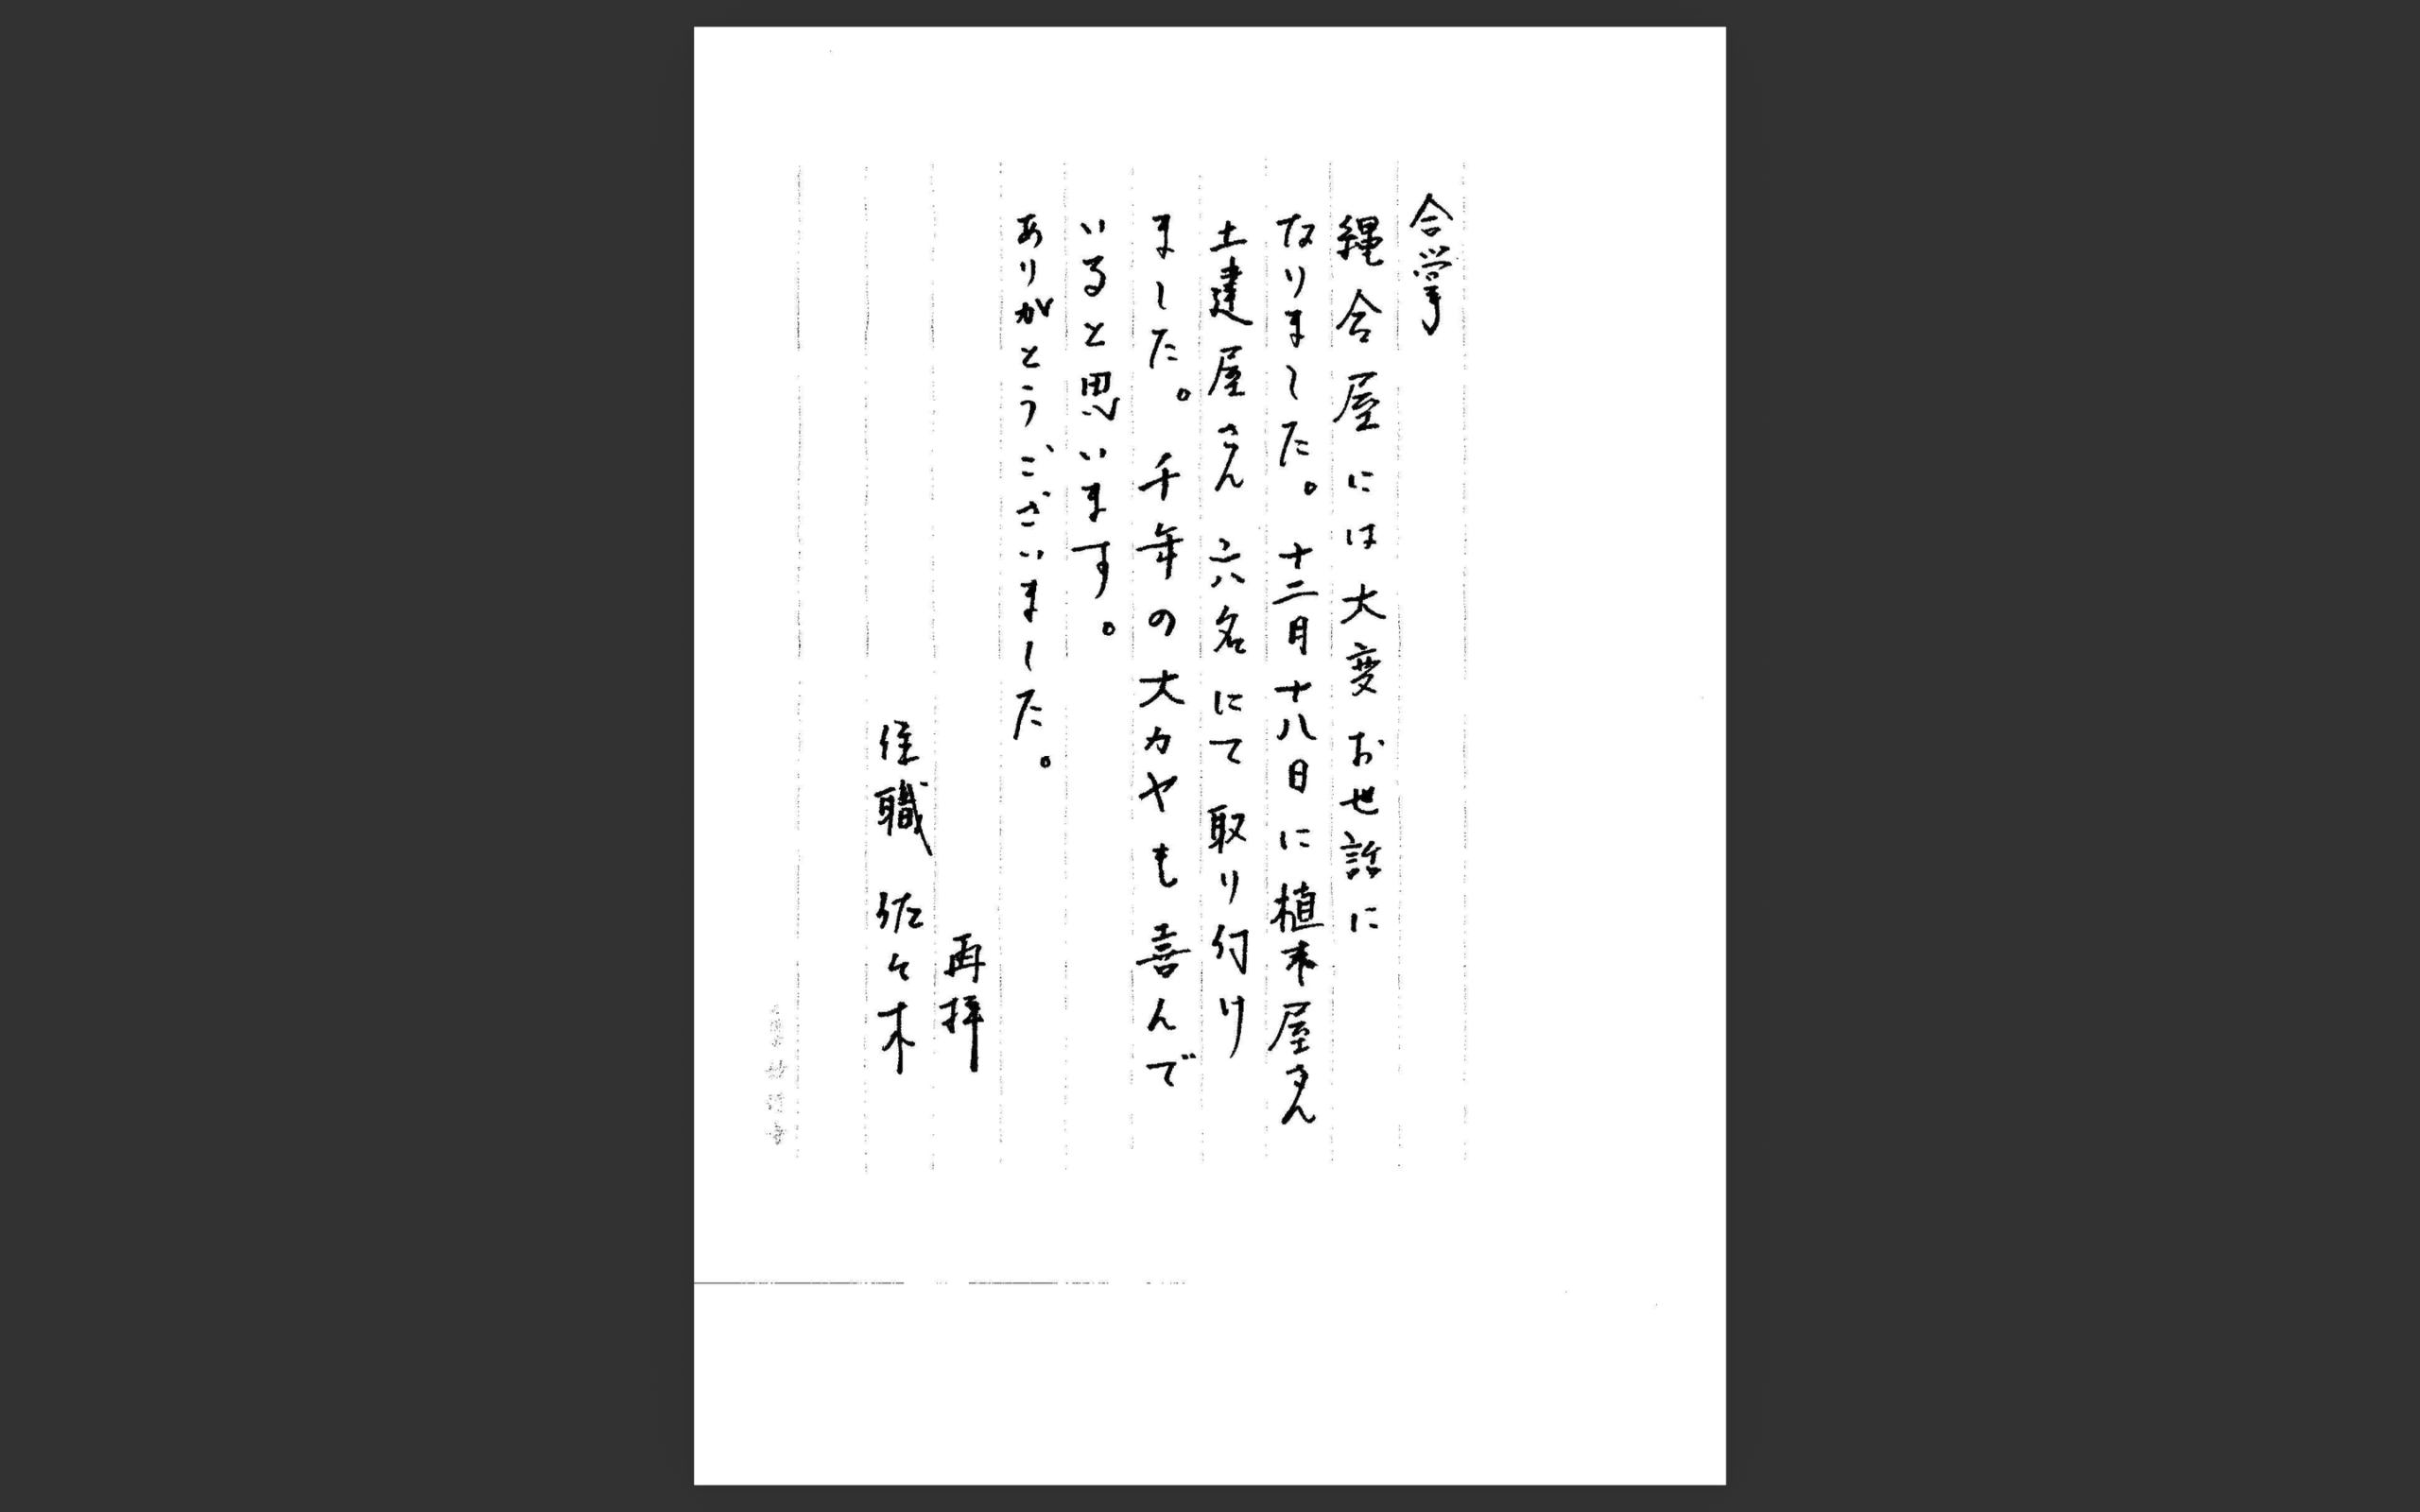 合掌
縄合屋には大変お世話に
なりました。十二月十八日に植木屋さん
土建屋さん六名にて取り付け
ました。千年の大カヤも喜んで
いると思います。
ありがとうございました。
再拝
住職 佐々木